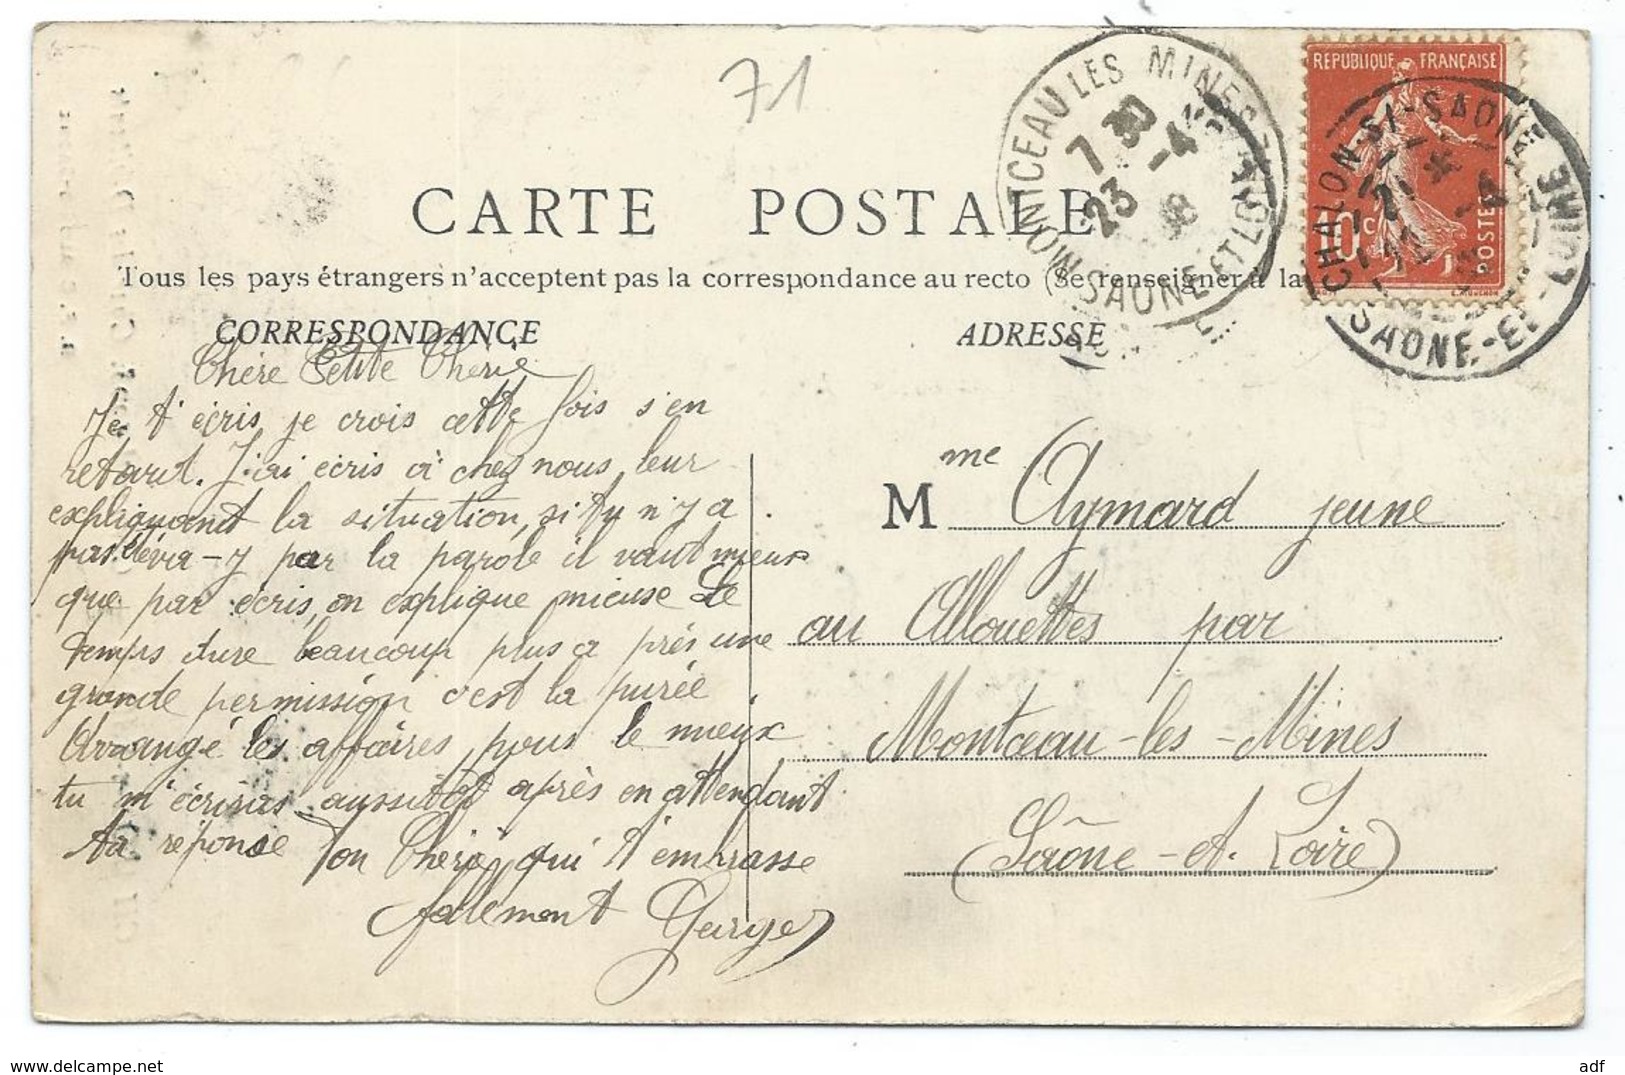 71
RÉPUBLIQUE FRANÇAISE
10c
POSTES
MONTCEAU LES MINES
7 30
23 -4
08
SAÔNE ET LOIRE
CHALON-S/-SAÔNE
SAÔNE-ET-LOIRE
CARTE POSTALE
Tous les pays étrangers n'acceptent pas la correspondance au recto (Se renseigner à la
CORRESPONDANCE
ADRESSE
Chère Petite Cherie
Je t'écris je crois cette fois s'en
retard. J'ai écris à chez nous leur
expliquant la situation, si tu n'y a
pas été va-y par la parole il vaut mieux
que par écris, on explique mieuse Le
temps dure beaucoup plus a près une
grande permission c'est la purée
Arrangé les affaires pour le mieux
tu m'écriras aussitôt après en attendant
ta réponse Ton Cherie qui t'embrasse
follement
M me Aymard jeune
au Allouettes par
Montceau-les-Mines
(Saône-et-Loire)
adf
delcampe.net